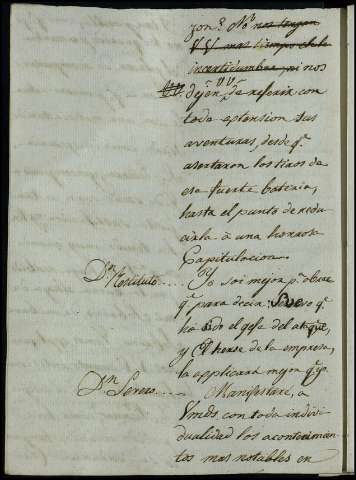 zon.s No nos tengan
V.V. mas tiempo en la
incertidumbre, ni nos
dejen V.V. de referir con
toda extension sus
aventuras, desde q.e
asertaron los tiros de
esa fuerte bateria,
hasta el punto de redu
cirla á una honrosa
Capitulacion.
Dn. Restituto.... Yo soi mejor p.a obrar
q.e para decir: Severo q.e
há sido el gefe del ataque,
y el heroe de la empresa,
la applicará mejor q.e yo.
Dn. Severo.... Manifestaré, a
Vmds con toda indivi
dualidad los acontecimien
tos mas notables en